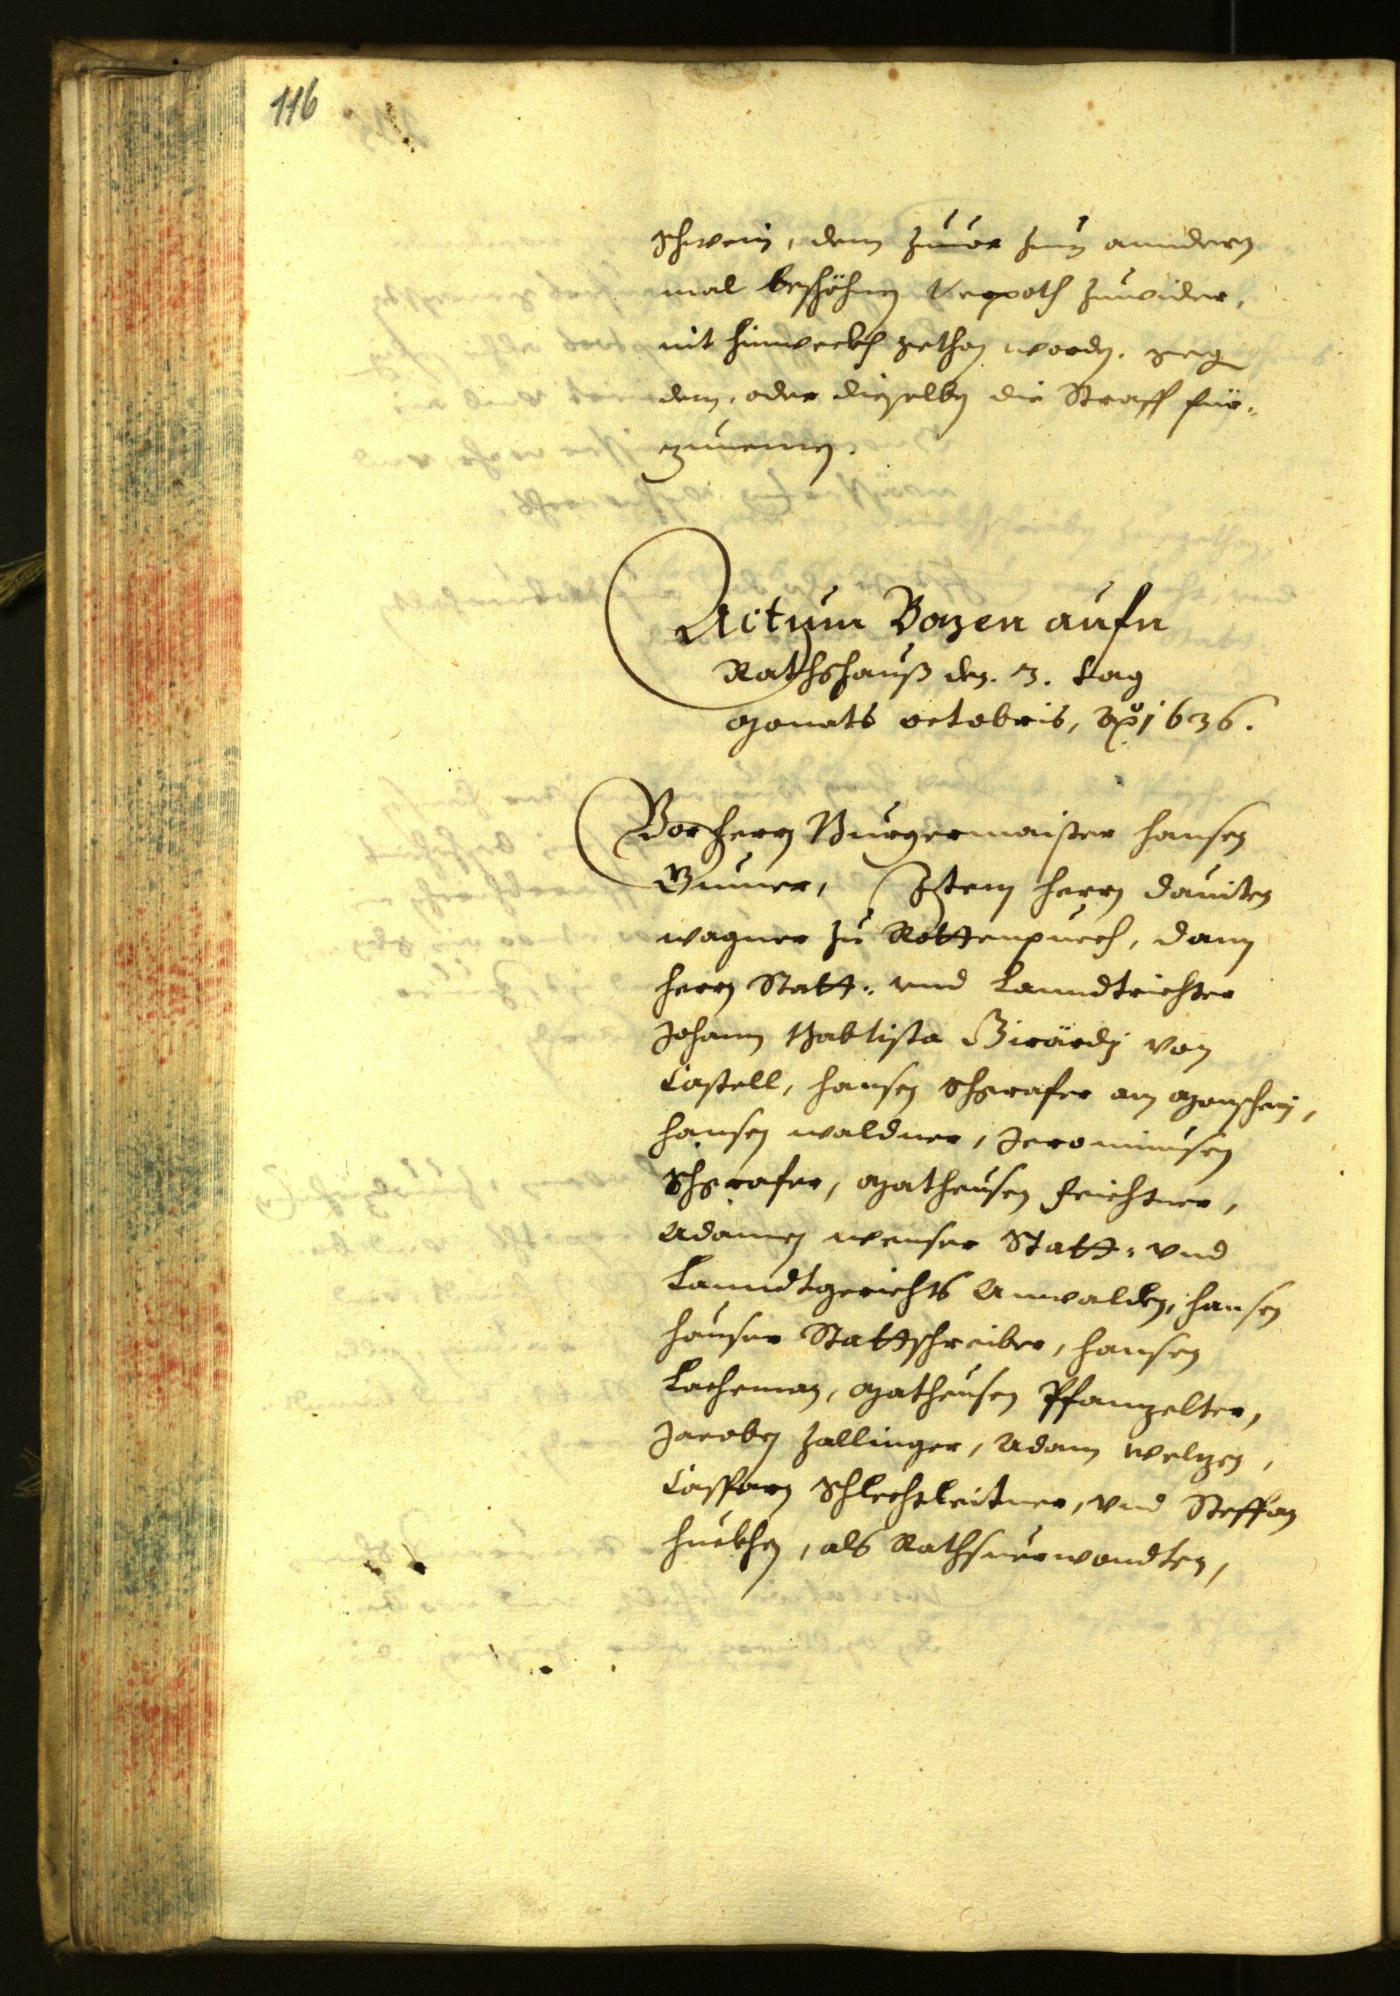 116
schwein, dem zuuor zum anndern
mal beschöhnen Verpoth zuwider,
nit hinweckh gethon worden. geg
dem, oder dieselben die Straff für-
zunemen.
Actum Bozen aufn
Rathshauß den. 3. tag
Monats octobris, A̅o̅ 1636.
Vor herrn Burgermaister Hansen
Gumer, Item herrn Dauiten
Wagner zu Rottenpuech, dann
herrn Statt- vnd Lanndtrichter
Johann Babtista Girärdj von
Castell, Hansen Schgrafer am Monschein,
Hansen Waldner, Jeronimusen
Schgrafer, Matheusen Feichtner,
Adamen Wenser Statt- vnd
Lanndtgerichts Anwalden, Hansen
Hauser Stattschreiber, Hansen
Lacheman, Matheusen Pfanzelter,
Jacoben Zallinger, Adam Welzen,
Casparn Schlechtleitner, vnd Steffan
Hueben, als Rathsuerwondten,